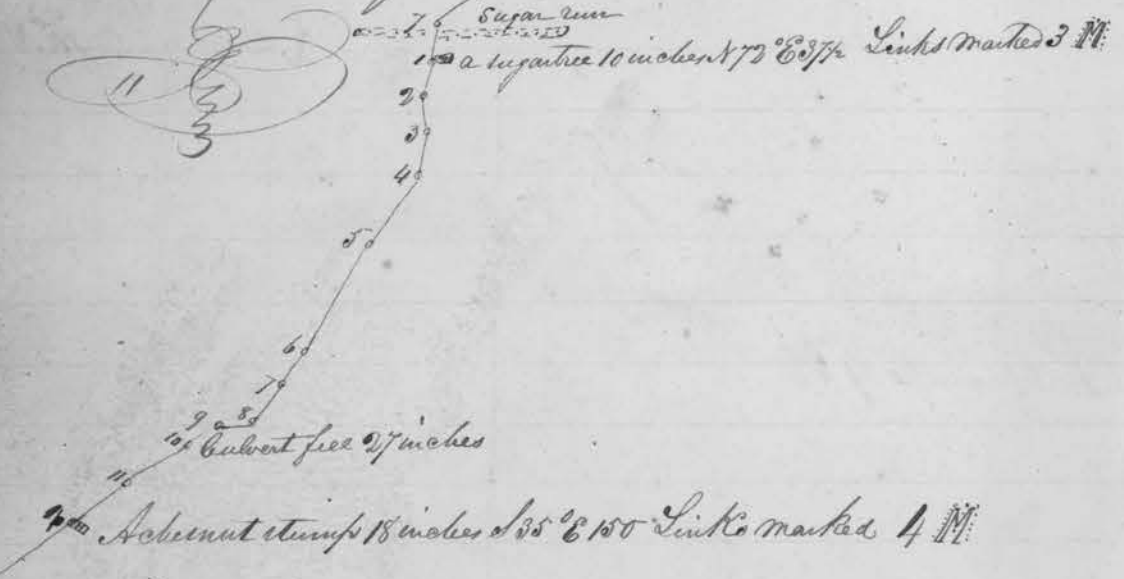 7 Sugar run
1 a sugartree 10 inches N 72° E 37½ Links marked 3 M
11
2
3
4
5
6
7
9 8
10 Culvert fill 27 inches
11
A chesnut stump 18 inches S 35° E 150 Links marked 4 M